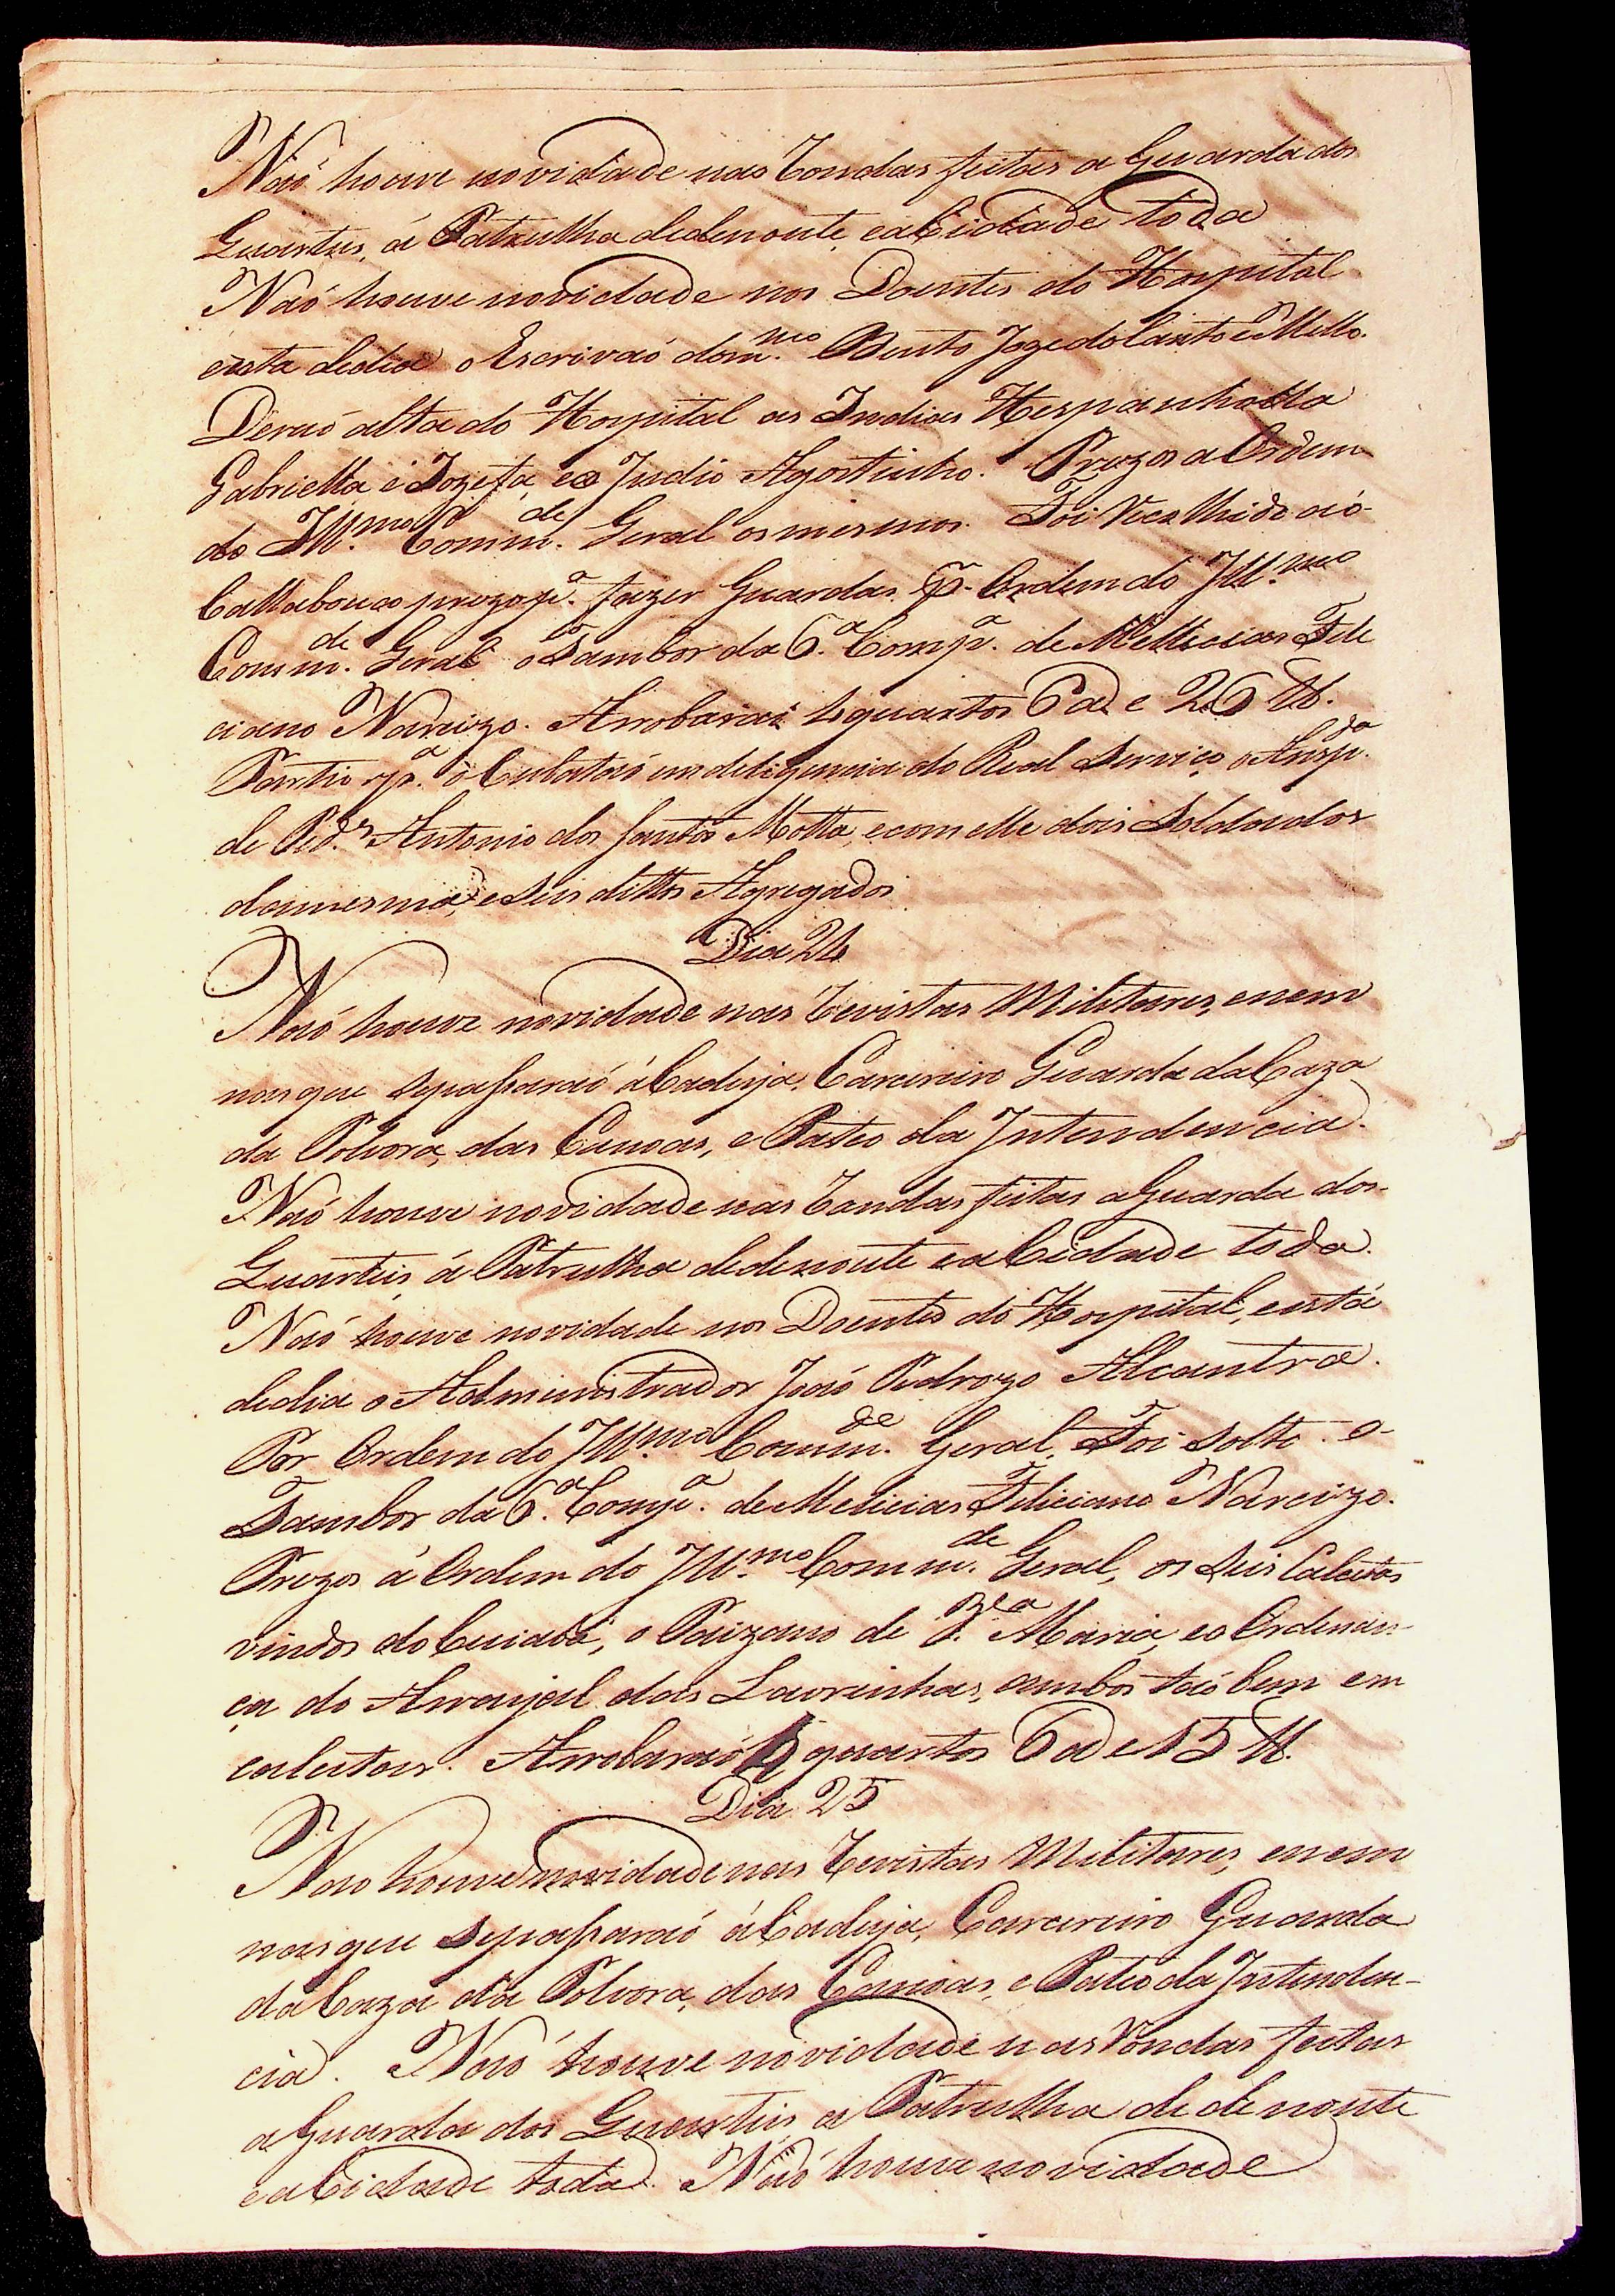 Naó houve novidade nas Rondas feitas a Guarda dos
Quarteis, á Patrulha dedenoute, eaCidade toda
Naó houve novidade nos Doentes do Hospital
esta dedia o Escrivaó dom.mo Bento Joze do Canto e Mello.
Deraó alta do Hospital as Indias Hespanholla
Gabriella e Jozefa, eo Indio Agostinho. Prezos a Ordem
do Ill.mo Comm.de Geral os mesmos. Foi Recolhido aó
Callabouco prezo p.a fazer Guardas, p.r Ordem do Ill.mo
Comm.de Geral o Tambor da 6.a Comp.a de Millicias Feli
ciano Narcizo. Arrobaraó 4 quartos 6 @ e 26 lb.
Partio p.a o Cubataó em deligencia do Real Serviço, o Ansp.da
de Ped.s Antonio dos Santos Motta, ecom elle dois Soldados
damesma, e Seis dittos Agregados
Dia 24
Naó houve novidade nas Revistas Militares, enem
nasque Sepassaraó áCadeya, Carcereiro Guarda daCaza
da Polvora, das Canoas, e Pateo da Intendencia.
Naó houve novidade nas Rondas feitas aGuarda dos
Quarteis, á Patrulha dedenoute eaCidade toda.
Naó houve novidade nos Doentes do Hospital, está
dedia o Administrador Joaó Pedrozo Alcantra.
Por Ordem do Ill.mo Comm.de Geral, Foi Solto o
Tambor da 6.a Comp.a de Melicias Feliciano Narcizo.
Prezos á Ordem do Ill.mo Comm.de Geral, os Seis Calcetas
vindos do Cuiabá, o Paizano de Maria, eo Ordenan-
ça do Arrayal das Lavrinhas, ambos taó bem em
calcetas. Arrobaraó 4 quartos 6 @ e 15 lb.
Dia 25
Nao houve novidade nas Revistas Militares, enem
nasque Sepassaraó áCadeya, Carcereiro Guarda
daCaza da Polvora, das Canoas, e Pateo da Intenden-
cia. Naó houve novidade nas Rondas feitas
aGuarda dos Quarteis, a Patrulha dedenoute
eaCidade toda. Naó houve novidade